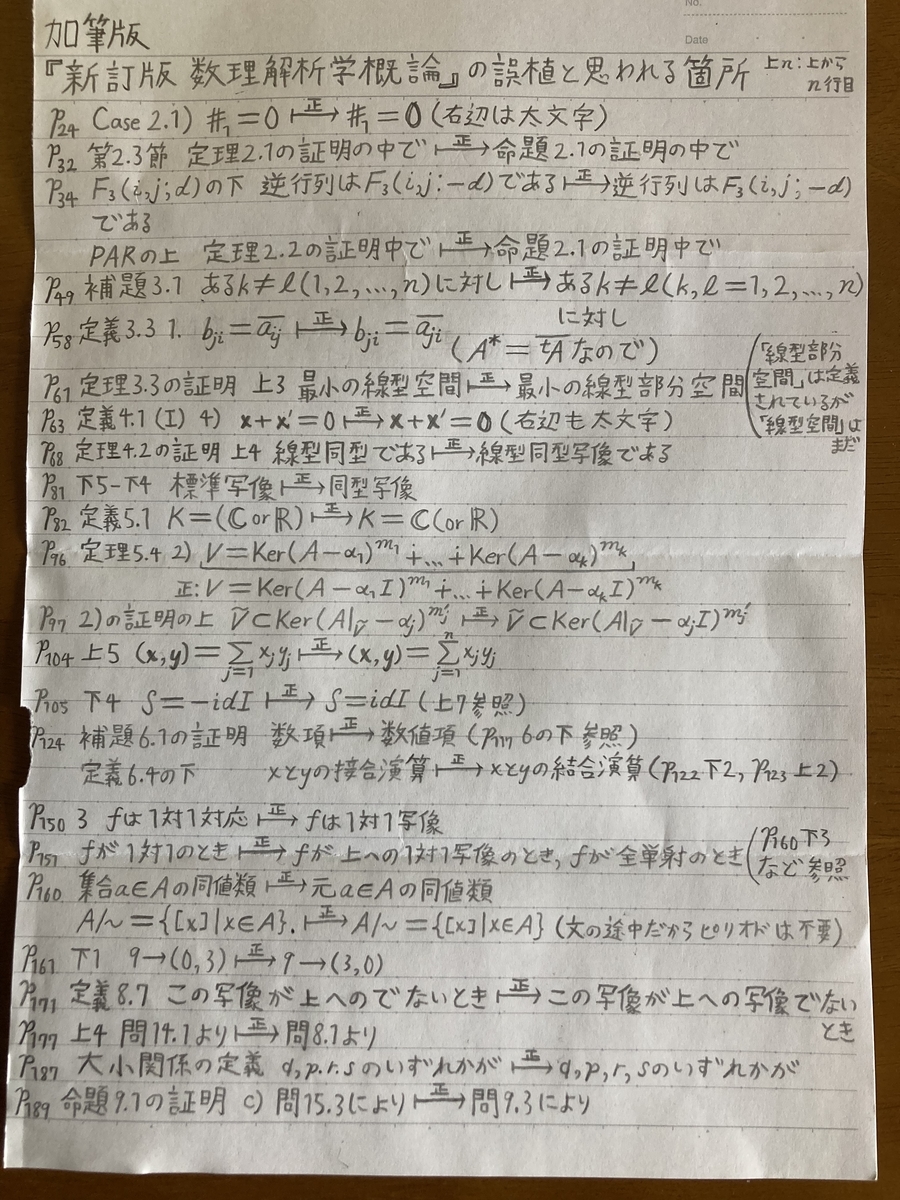 No.
Date
加筆版
『新訂版 数理解析学概論』の誤植と思われる箇所 上n:上から
n行目
P24 Case 2.1) #₁=0 ⟼正 #₁=𝟎 (右辺は太文字)
P32 第2.3節 定理2.1の証明の中で ⟼正 命題2.1の証明の中で
P34 F₃(i,j;d)の下 逆行列はF₃(i,j:-d)である ⟼正 逆行列はF₃(i,j;-d)
である
PARの上 定理2.2の証明中で ⟼正 命題2.1の証明中で
P49 補題3.1 あるk≠ℓ(1,2,…,n)に対し ⟼正 あるk≠ℓ(k,ℓ=1,2,…,n)
に対し
P58 定義3.3 1. bji=\overline{aij} ⟼正 bji=\overline{aji}
(A*=\overline{tA}なので)
P61 定理3.3の証明 上3 最小の線型空間 ⟼正 最小の線型部分空間
(「線型部分
空間」は定義
されているが
「線型空間」は
まだ
P63 定義4.1 (I) 4) 𝐱+𝐱′=0 ⟼正 𝐱+𝐱′=𝟎 (右辺も太文字)
P68 定理4.2の証明 上4 線型同型である ⟼正 線型同型写像である
P81 下5-下4 標準写像 ⟼正 同型写像
P82 定義5.1 K=(ℂ or ℝ) ⟼正 K=ℂ(or ℝ)
P96 定理5.4 2) V=Ker(A-α₁)^{m₁}∔…∔Ker(A-αk)^{mk}
正:V=Ker(A-α₁I)^{m₁}∔…∔Ker(A-αkI)^{mk}
P97 2)の証明の上 Ṽ⊂Ker(A|Ṽ-αj)^{mj′} ⟼正 Ṽ⊂Ker(A|Ṽ-αjI)^{mj′}
P104 上5 (𝐱,𝐲)=∑_{j=1} xjyj ⟼正 (𝐱,𝐲)=∑_{j=1}^{n} xjyj
P105 下4 S=-idI ⟼正 S=idI (上7参照)
P124 補題6.1の証明 数項 ⟼正 数値項 (P117 6の下参照)
定義6.4の下 xとyの接合演算 ⟼正 xとyの結合演算(P122下2, P123上2)
P150 3 fは1対1対応 ⟼正 fは1対1写像
P151 fが1対1のとき ⟼正 fが上への1対1写像のとき, fが全単射のとき
(P160下3
など参照
P160 集合a∈Aの同値類 ⟼正 元a∈Aの同値類
A/~={[x]|x∈A}. ⟼正 A/~={[x]|x∈A} (文の途中だからピリオドは不要)
P161 下1 9→(0,3) ⟼正 9→(3,0)
P171 定義8.7 この写像が上へのでないとき ⟼正 この写像が上への写像でない
とき
P177 上4 問14.1より ⟼正 問8.1より
P187 大小関係の定義 q,p.r.sのいずれかが ⟼正 q,p,r,sのいずれかが
P189 命題9.1の証明 c) 問15.3により ⟼正 問9.3により